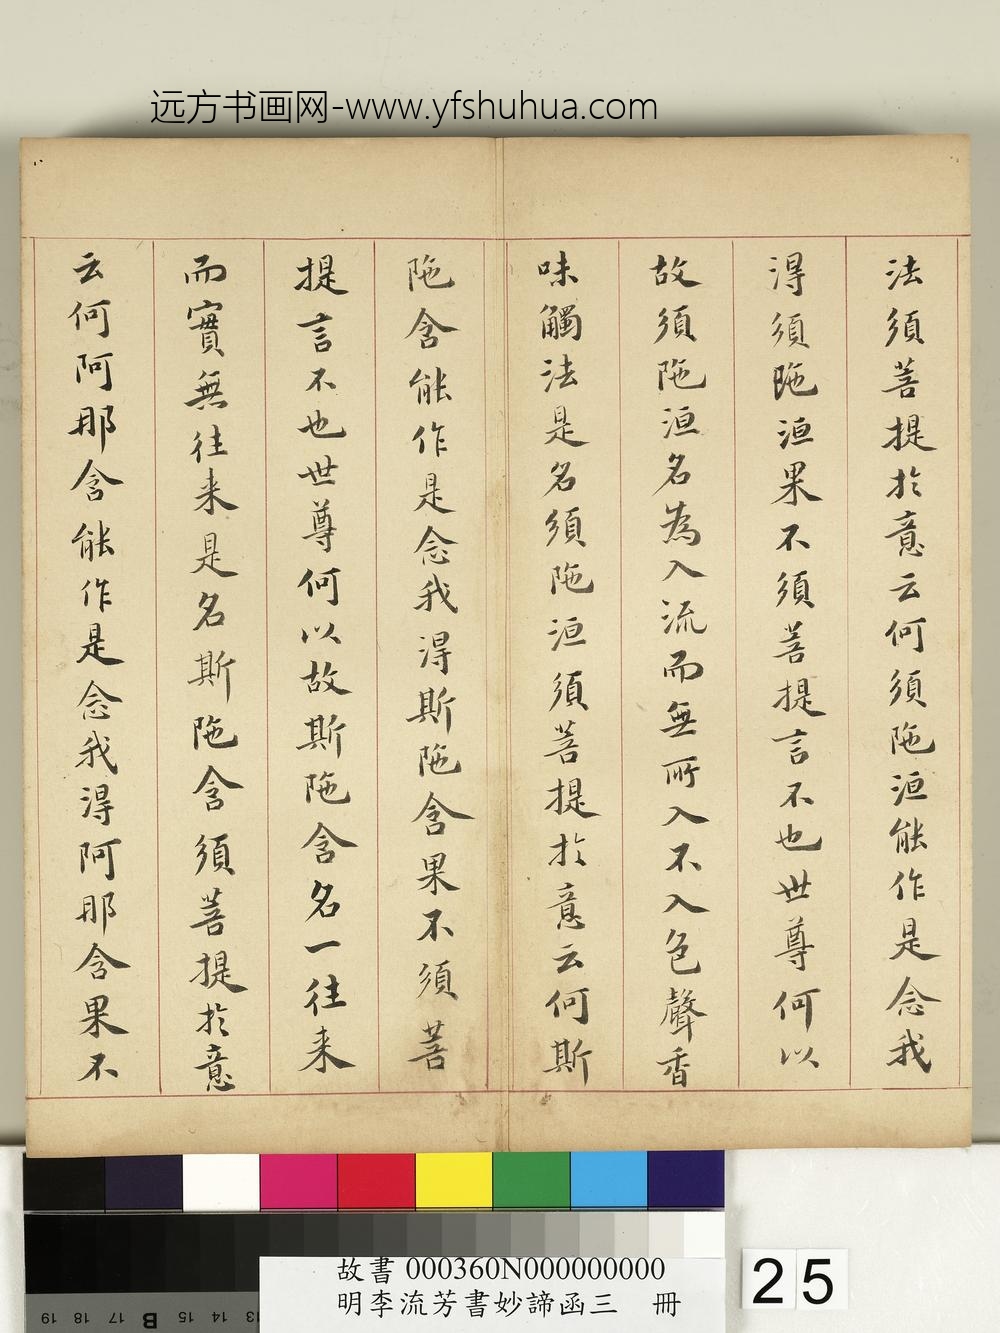 远方书画网-www.yfshuhua.com
法須菩提於意云何須陁洹能作是念我
淂須陁洹果不須菩提言不也世尊何以
故須陁洹名為入流而無所入不入色聲香
味觸法是名須陁洹須菩提於意云何斯
陁含能作是念我淂斯陁含果不須菩
提言不也世尊何以故斯陁含名一往来
而實無往来是名斯陁含須菩提於意
云何阿那含能作是念我淂阿那含果不
故書 000360N000000000
明李流芳書妙諦函三 冊
25
19 18 17 B 15 14 13